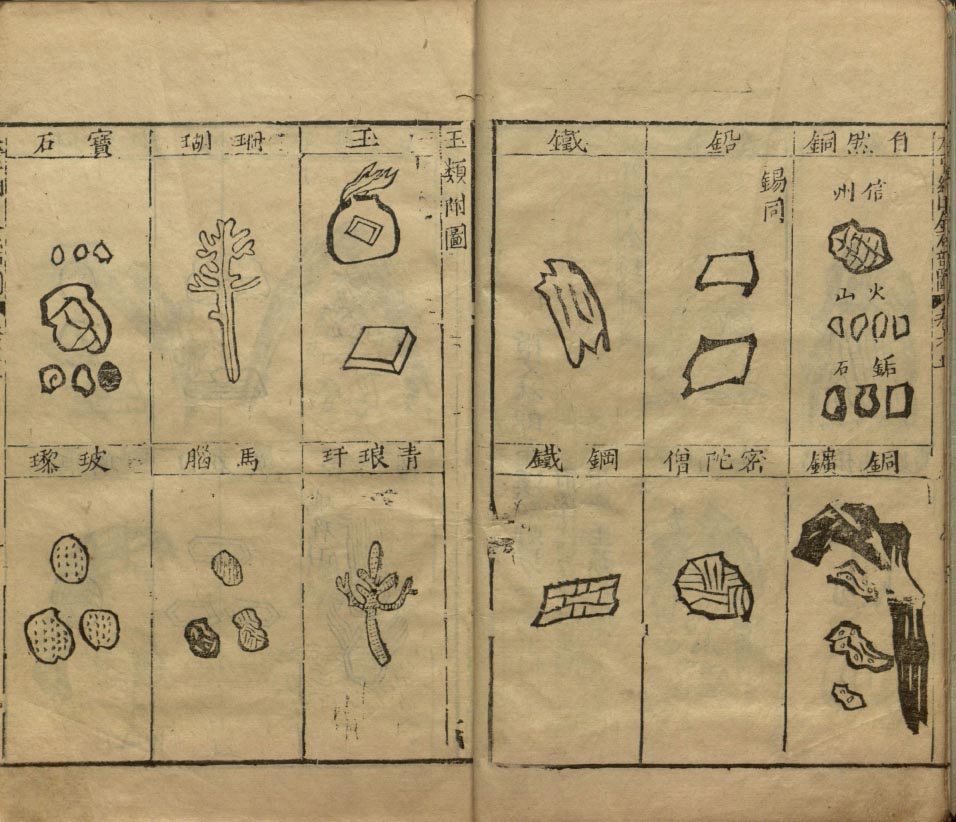 自然銅
信州
火山
鉐石
鉛
錫同
鐵
銅鑛
密陀僧
鋼鐵
玉類附圖
玉
珊瑚
寶石
青琅玕
馬腦
玻瓈